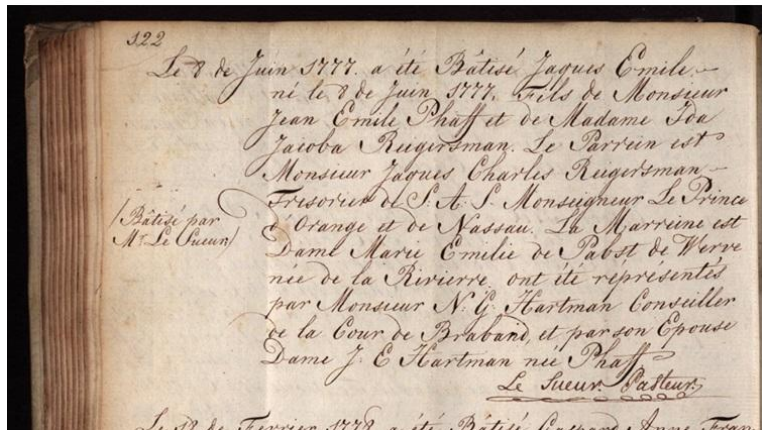 122
Le 8 de Juin 1777. a été Bâtisé Jaques Emile
né le 8 de Juin 1777. Fils de Monsieur
Jean Emile Phaff et de Madame Ida
Jacoba Reugersman. Le Parrein est
Monsieur Jaques Charles Reugersman
Tresorier de S. A. S. Monseigneur Le Prince
d'Orange et de Nassau. La Marreine est
/Bâtisé par
Mr. Le Sueur/
Dame Marie Emilie de Pabst de Werve
née de la Rivierre, ont été représentés
par Monsieur N. G. Hartman Conseiller
de la Cour de Braband, et par son Epouse
Dame J. E Hartman née Phaff
Le Sueur. Pasteur.
Le 12 de Fevrier 1778 a été Bâtisé Gaspard Anne Fran-